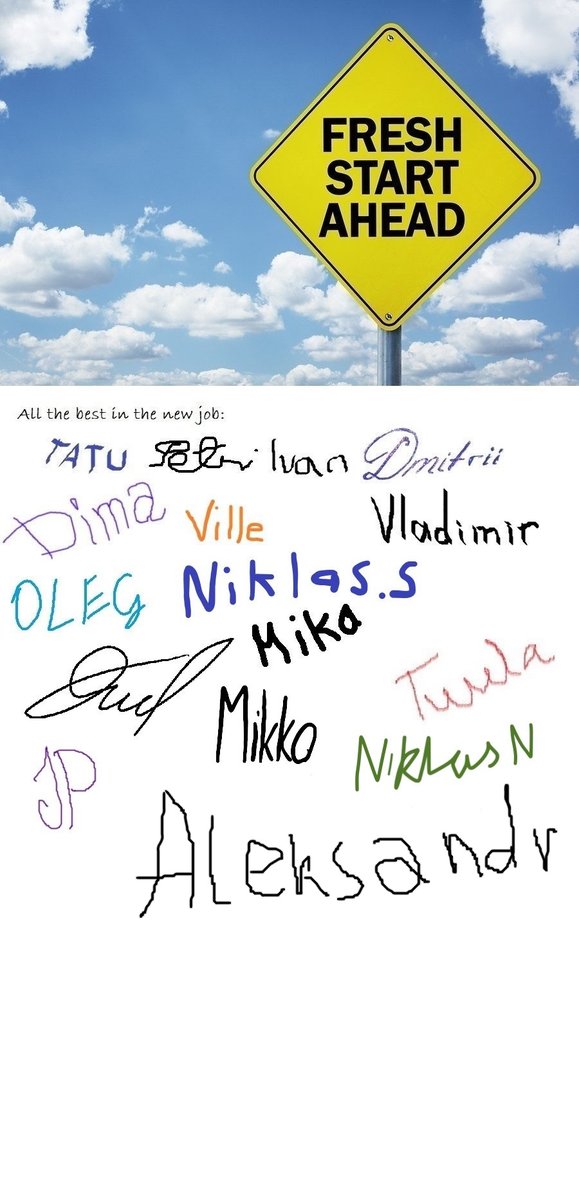 FRESH
START
AHEAD
All the best in the new job:
TATU Petri Ivan Dmitrii
Dima Ville Vladimir
OLEG Niklas.S
Mika
Tuula
Mikko
JP Niklas N
Aleksandr